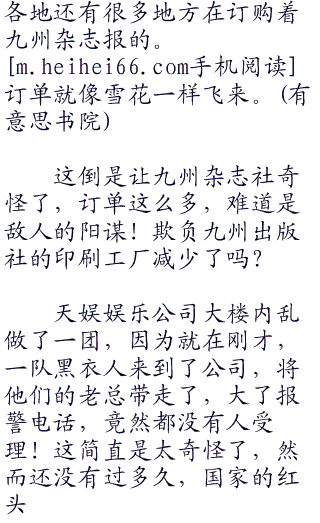 各地还有很多地方在订购着
九州杂志报的。
[m.heihei66.com手机阅读]
订单就像雪花一样飞来。(有
意思书院)
这倒是让九州杂志社奇
怪了，订单这么多，难道是
敌人的阳谋！欺负九州出版
社的印刷工厂减少了吗？
天娱娱乐公司大楼内乱
做了一团，因为就在刚才，
一队黑衣人来到了公司，将
他们的老总带走了，大了报
警电话，竟然都没有人受
理！这简直是太奇怪了，然
而还没有过多久，国家的红
头